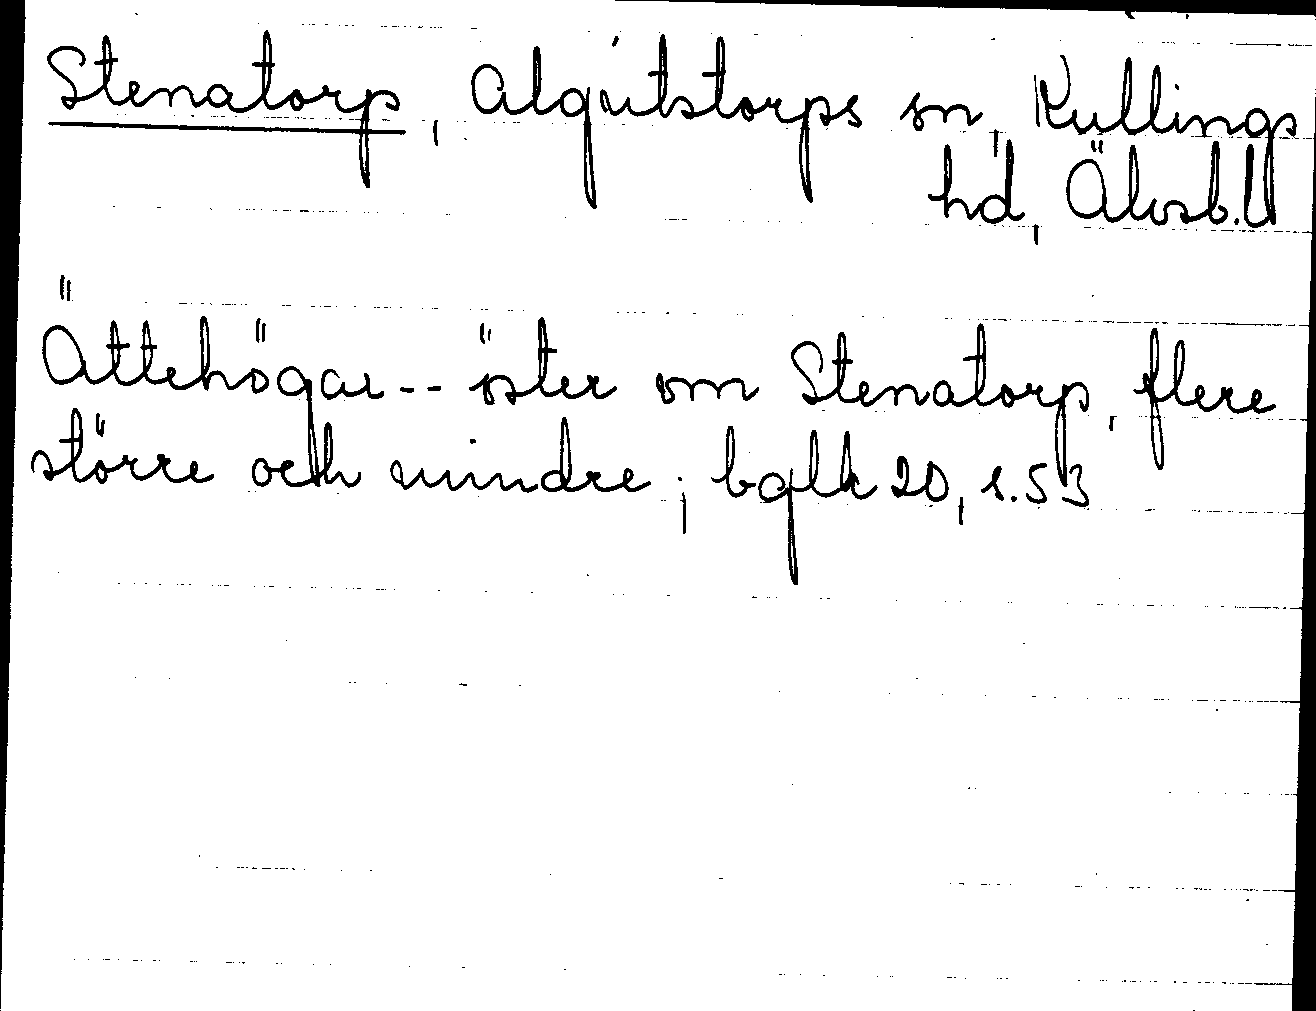 Stenatorp, Algutstorps sn, Kullings
hd, Älvsb.l
Ättehögar -- öster om Stenatorp, flere
större och mindre; bglh 20, s.53